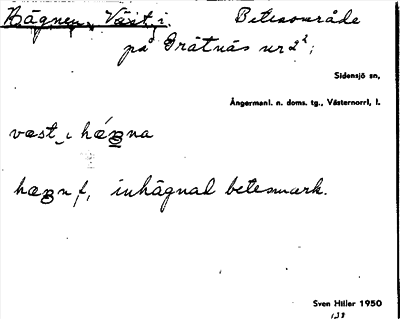 Hägnen, Väst i. Betesområde
på Grätnäs nr 2²;
Sidensjö sn,
Ångermanl. n. doms. tg., Västernorrl. l.
væst i
f, inhägnad betesmark.
Sven Hiller 1950